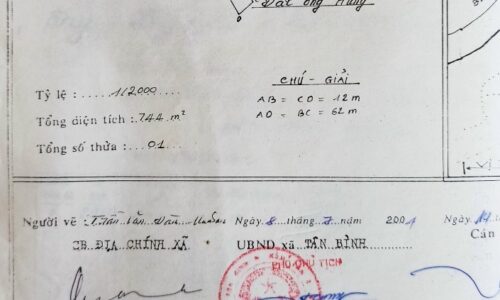 Đất ông Hùng
CHÚ - GIẢI
Tỷ lệ : 1/2000
AB = CD = 12 m
Tổng diện tích : 744 m²
AD = BC = 62 m
Tổng số thửa : 01
Người vẽ : Ngày 8 tháng 7 năm 2001 Ngày 14
CB ĐỊA CHÍNH XÃ UBND xã TÂN BÌNH Cán
PHÓ CHỦ TỊCH